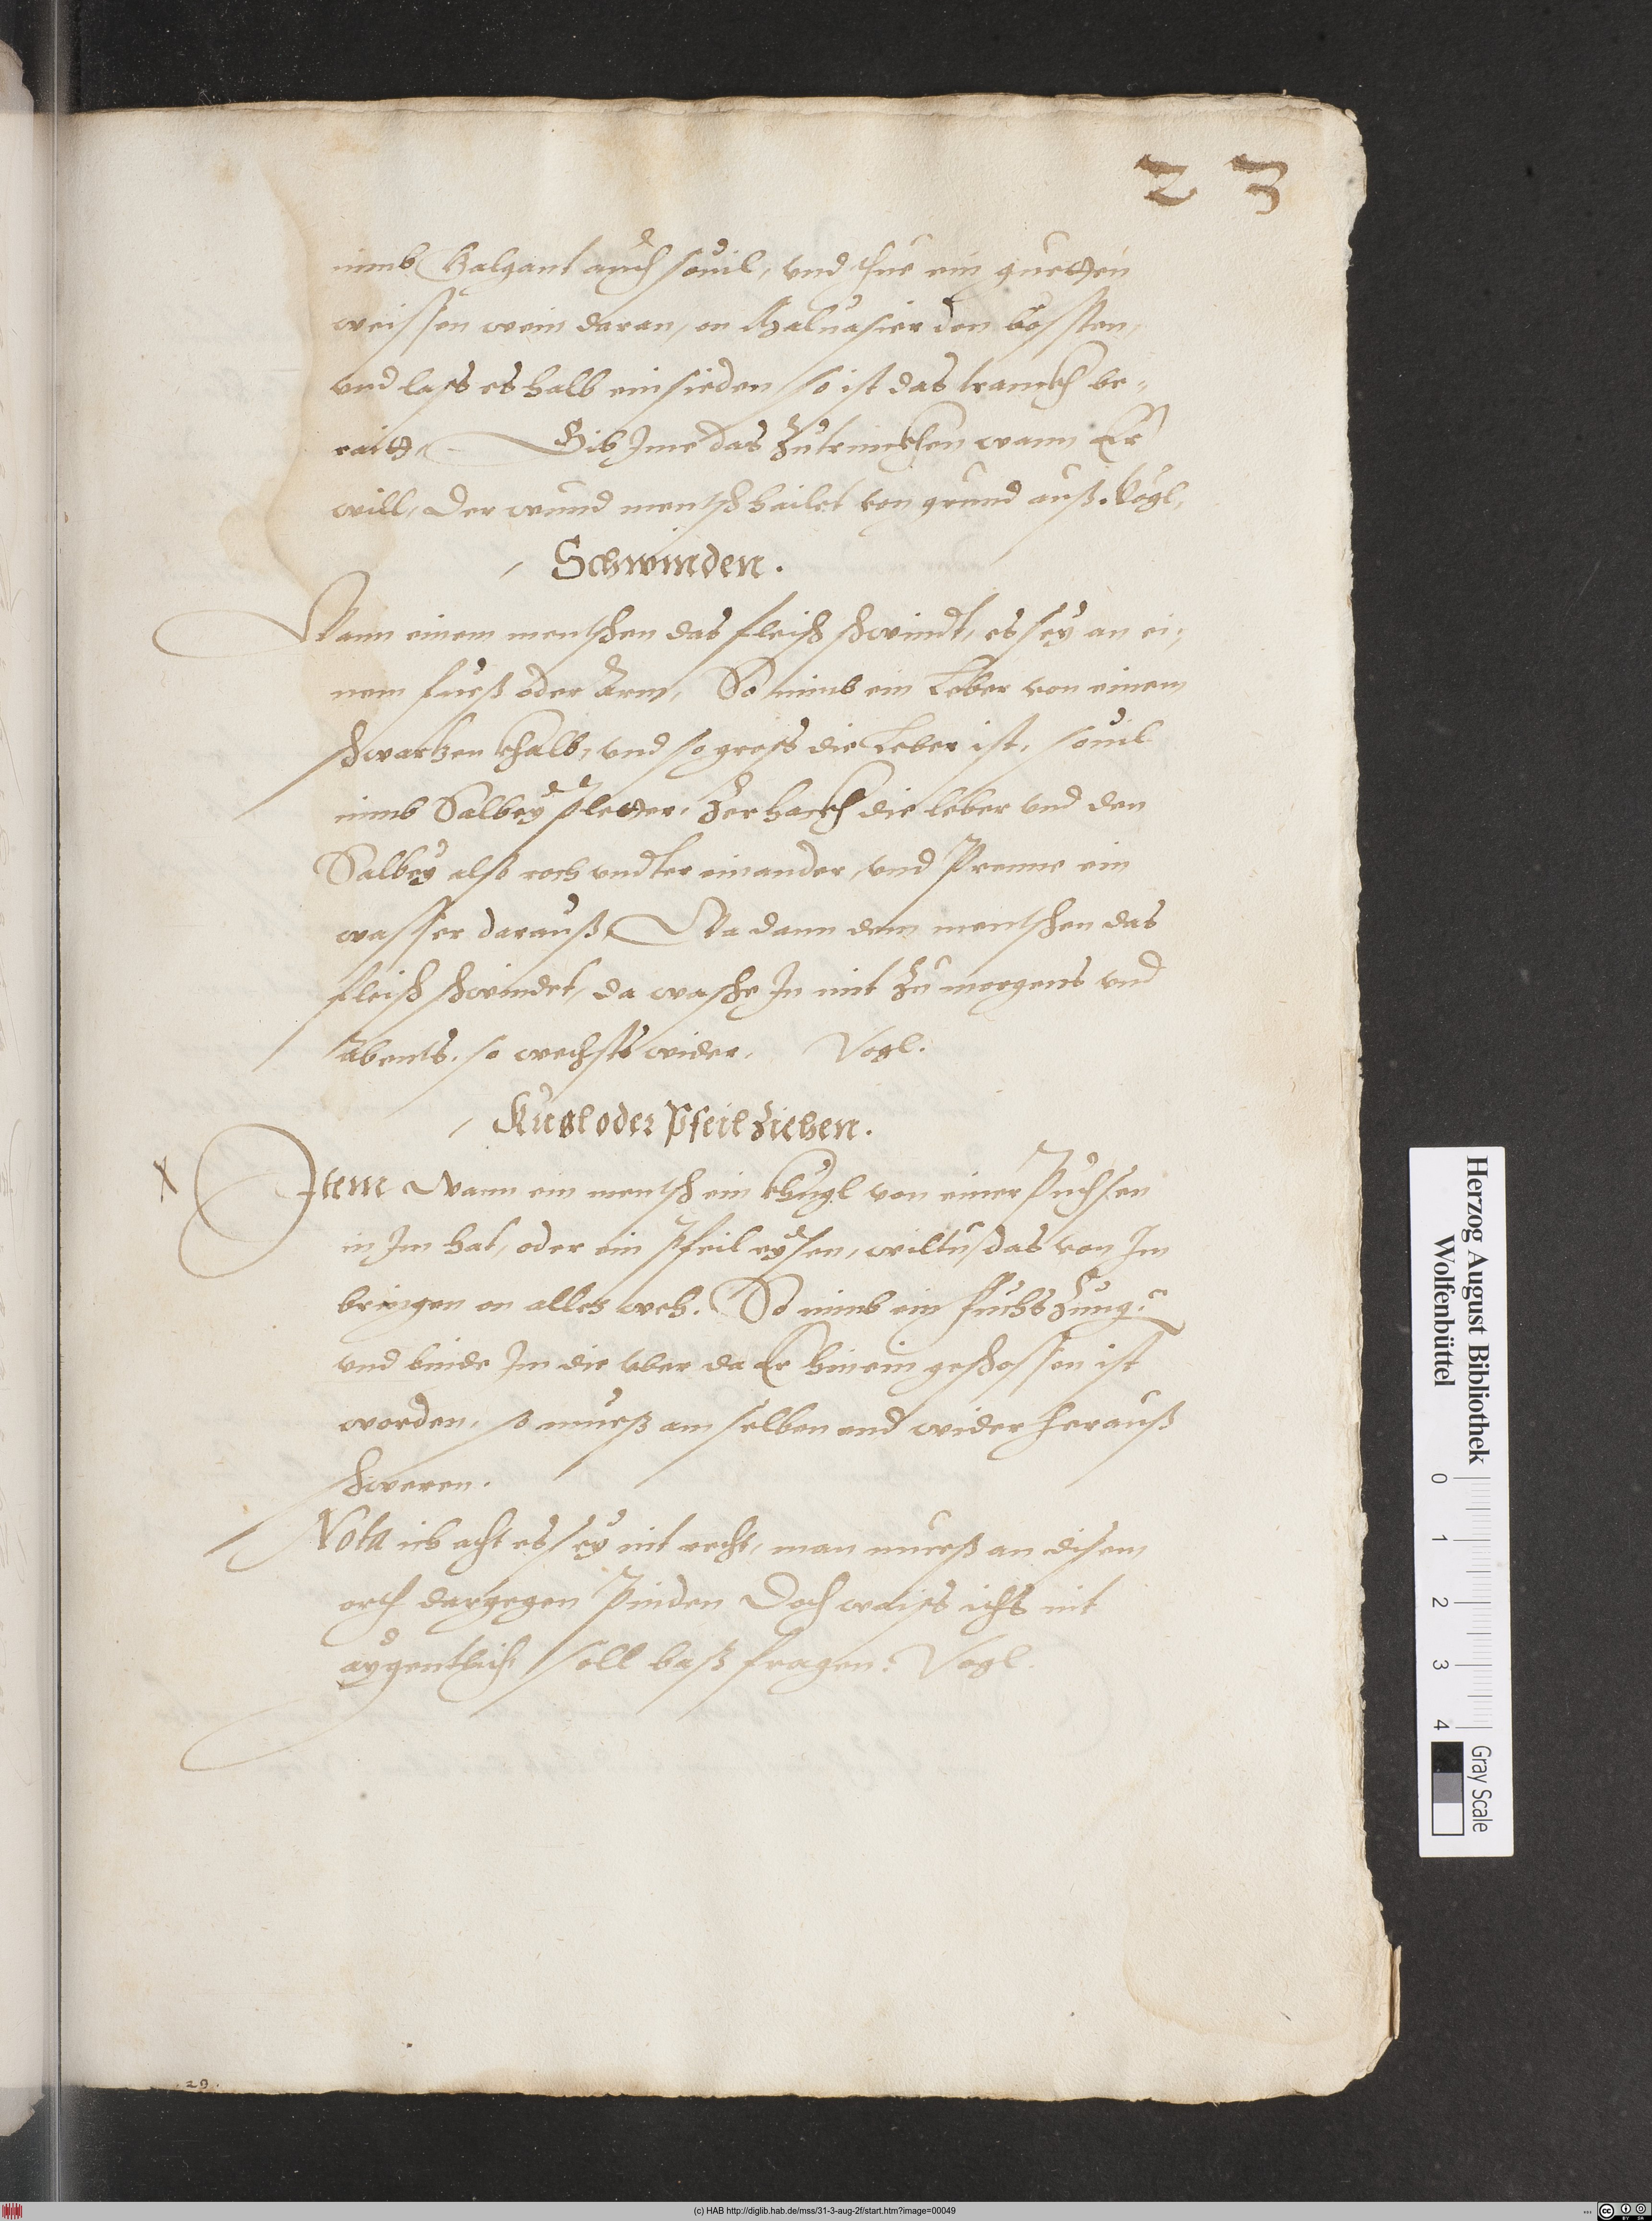 23
nimb Galgant auch souil, vnd thue ein guetten
weissen wein daran, on Maluasier den bössten,
vnd lass es halb einsieden so ist das tranckh be-
raitt, Gib Ime das zutrinckhen wann Er
will, der wund mentsch hailet von grund auß. Vogl.
Schwinden.
Wann einem mentschen das fleisch schwindt, es sey an ei-
nem fueß oder Arm, So nimb ein Leber von einem
schwartzen khalb, vnd so gross die Leber ist, souil
nimb Salbey Pletter, Zerhackh die leber vnd den
Salbey also roch vndter einander, vnd Prenne ein
wasser darauß, Wa dann dem mentschen das
fleisch schwindet, da wasche In mit zu morgens vnd
Abents, so wechsts wider. Vogl.
Kugl oder Pfeil Ziehen.
Item Wann ein mentsch ein khugl von einer Puchsen
in Im hat, oder ein Pfeil eysen, wiltu das von Im
bringen on alles weh. So nimb ein fuchs Zung
vnd binde Im die vber da Er hinein geschossen ist
worden, so mueß am selben end wider herauß
schweren.
Nota ich acht es sey nit recht, man mueß an disem
orth dargegen Pinden Doch waiss ichs nit
aygentlich soll baß fragen. Vogl.
29.
Herzog August Bibliothek
Wolfenbüttel
0 1 2 3 4
Gray Scale
(c) HAB http://diglib.hab.de/mss/31-3-aug-2f/start.htm?image=00049